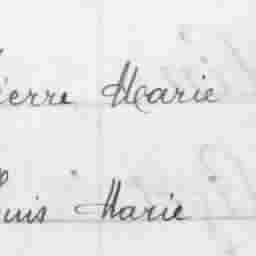 ierre Marie
uis Marie